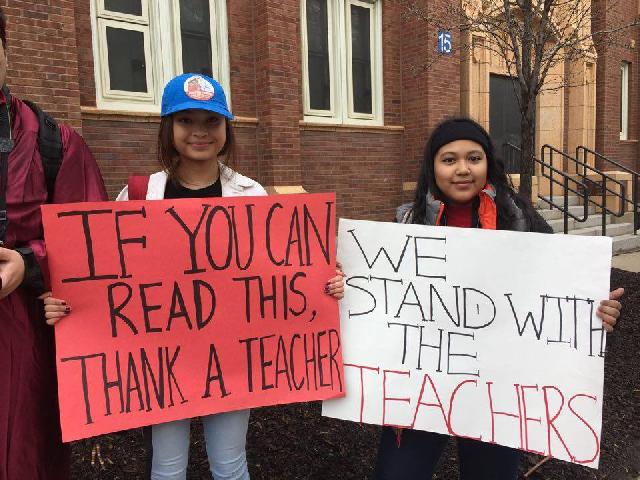 15
IF YOU CAN
READ THIS,
THANK A TEACHER
WE
STAND WITH
THE
TEACHERS